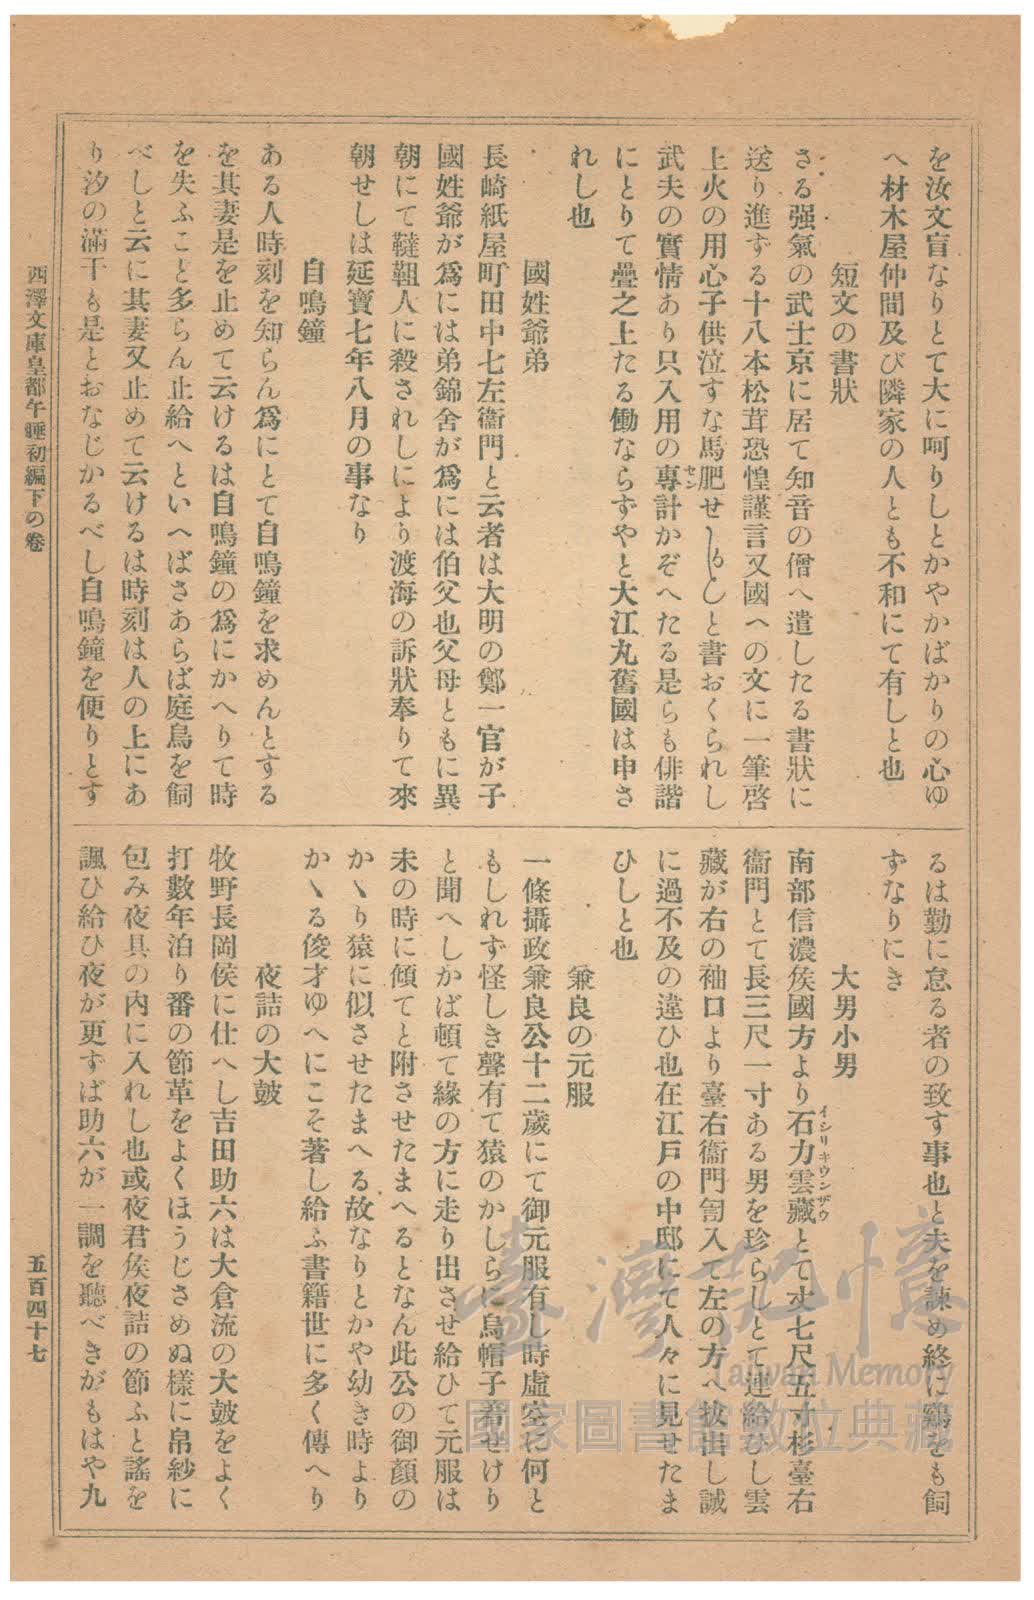 を汝文盲なりとて大に呵りしとかやかばかりの心ゆ
へ材木屋仲間及び隣家の人とも不和にて有しと也
短文の書狀
さる强氣の武士京に居て知音の僧へ遣したる書狀に
送り進ずる十八本松茸恐惶謹言又國への文に一筆啓
上火の用心子供泣すな馬肥せ〳〵もしと書おくられし
武夫の實情あり只入用の專計かぞへたる是らも俳諧
セン
にとりて疊之上たる働ならずやと大江丸舊國は申さ
れし也
國姓爺弟
長崎紙屋町田中七左衞門と云者は大明の鄭一官が子
國姓爺が爲には弟錦舍が爲には伯父也父母ともに異
朝にて韃靼人に殺されしにより渡海の訴狀奉りて來
朝せしは延寶七年八月の事なり
自鳴鐘
ある人時刻を知らん爲にとて自鳴鐘を求めんとする
を其妻是を止めて云けるは自鳴鐘の爲にかへりて時
を失ふこと多らん止給へといへばさあらば庭鳥を飼
べしと云に其妻又止めて云けるは時刻は人の上にあ
り汐の滿干も是とおなじかるべし自鳴鐘を便りとす
るは勤に怠る者の致す事也と夫を諫め終に鷄をも飼
ずなりにき
大男小男
南部信濃侯國方より石力雲藏とて丈七尺五寸杉臺右
イシリキウンザウ
衞門とて長三尺一寸ある男を珍らしとて連給ひし雲
藏が右の袖口より臺右衞門匍入て左の方へ拔出し誠
に過不及の違ひ也在江戶の中邸にて人々に見せたま
ひしと也
兼良の元服
一條攝政兼良公十二歲にて御元服有し時虛空に何と
もしれず怪しき聲有て猿のかしらに烏帽子着せけり
と聞へしかば頓て緣の方に走り出させ給ひて元服は
未の時に傾てと附させたまへるとなん此公の御顏の
かヽり猿に似させたまへる故なりとかや幼き時より
かヽる俊才ゆへにこそ著し給ふ書籍世に多く傳へり
夜詰の大鼓
牧野長岡侯に仕へし吉田助六は大倉流の大鼓をよく
打數年泊り番の節革をよくほうじさめぬ樣に帛紗に
包み夜具の內に入れし也或夜君侯夜詰の節ふと謠を
諷ひ給ひ夜が更ずば助六が一調を聽べきがもはや九
西澤文庫皇都午睡初編下の卷
五百四十七
臺灣記憶
Taiwan Memory
國家圖書館數位典藏